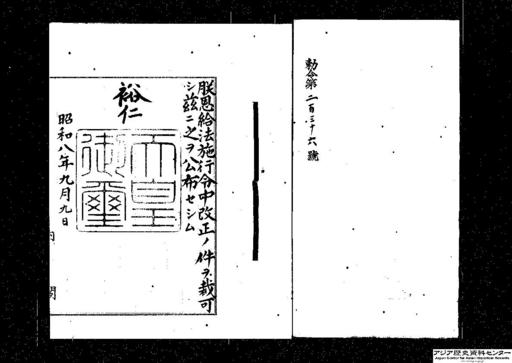 勅令第二百三十六號
朕恩給法施行令中改正ノ件ヲ裁可
シ茲ニ之ヲ公布セシム
裕仁
天皇御璽
昭和八年九月九日
内閣
アジア歴史資料センター
Japan Center for Asian Historical Records